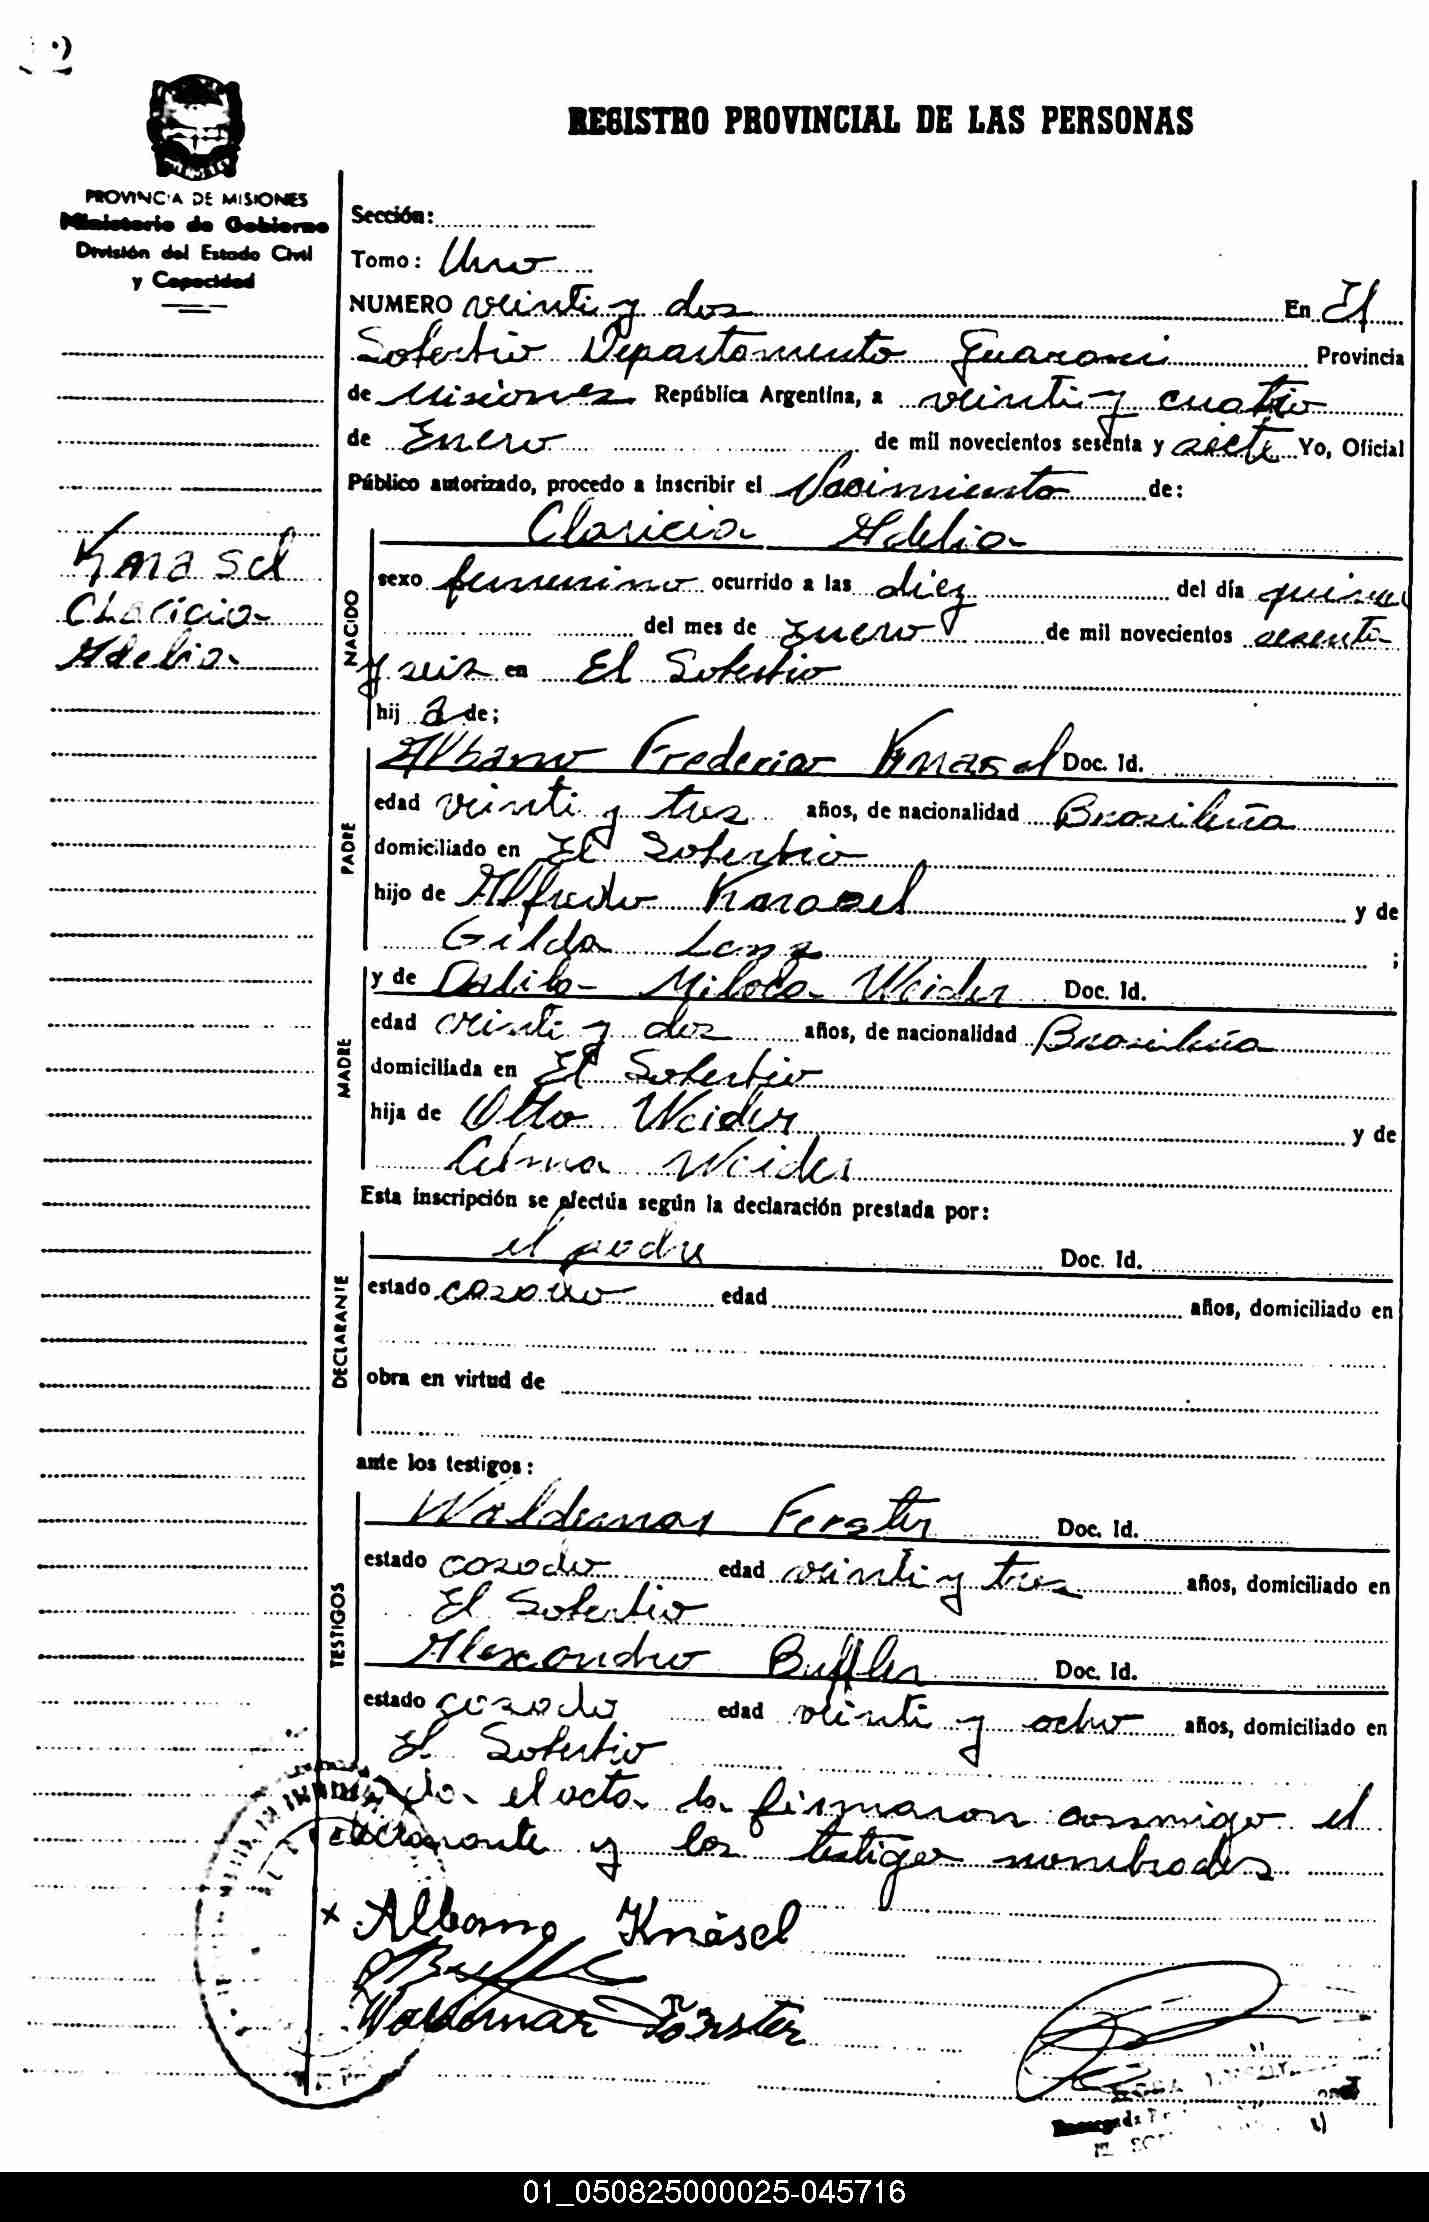 REGISTRO PROVINCIAL DE LAS PERSONAS
PROVINCIA DE MISIONES
Ministerio de Gobierno
División del Estado Civil
y Capacidad
Knasel
Claricia
Adelia
Sección:
Tomo: Uno
NUMERO veinti y dos En El
Soberbio Departamento Guarani Provincia
de Misiones República Argentina, a veinti y cuatro
de Enero de mil novecientos sesenta y siete Yo, Oficial
Público autorizado, procedo a inscribir el Nacimiento de:
NACIDO
Claricia Adelia
sexo femenino ocurrido a las diez del día quince
del mes de Enero de mil novecientos sesenta
y seis en El Soberbio
hij a de;
PADRE
Albano Frederico Knasel Doc. Id.
edad veinti y tres años, de nacionalidad Brasileña
domiciliado en El Soberbio
hijo de Alfredo Knasel y de
Gilda Lenz ;
MADRE
y de Miloca Weider Doc. Id.
edad veinti y dos años, de nacionalidad Brasileña
domiciliada en El Soberbio
hija de Otto Weider y de
Weider
Esta inscripción se efectúa según la declaración prestada por:
DECLARANTE
el padre Doc. Id.
estado casado edad años, domiciliado en
obra en virtud de
ante los testigos:
TESTIGOS
Waldemar Ferster Doc. Id.
estado casado edad veinti y tres años, domiciliado en
El Soberbio
Alexandro Buffler Doc. Id.
estado casado edad veinti y ocho años, domiciliado en
El Soberbio
el acta la firmaron conmigo el
declarante y los testigos nombrados
x Albano Knäsel
Waldemar Förster
01_050825000025-045716